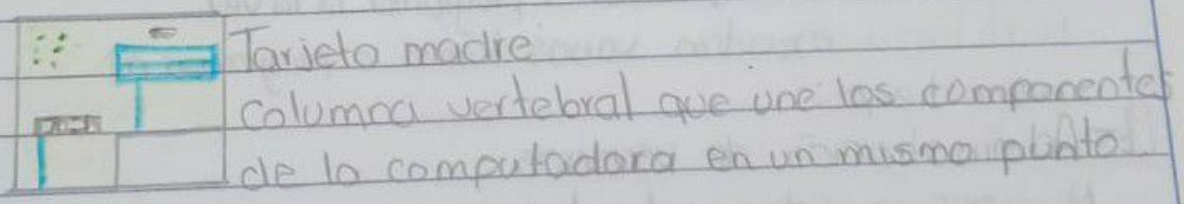 Tarjeta madre
columna vertebral que une los componentes
de la computadora en un mismo punto